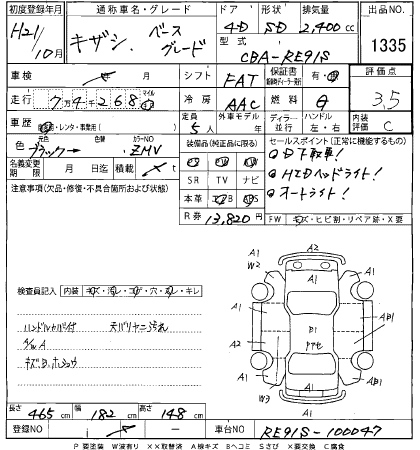 初度登録年月 通称車名・グレード ドア 形状 排気量 出品NO.
H21/10月 キザシ ベースグレード 4D SD 2,400cc 1335
型式 CBA-RE91S
車検 月 シフト FAT 保証書 有・無 評価点
走行 7万4千268 マイル km 冷房 AAC 燃料 G 3.5
車歴 自家用・レンタ・事業用( ) 定員 5人 外車モデル ディーラー 並行 ハンドル 左・右 内装評価 C
色 元色 ブラック→ 色替 カラーNO ZMV 装備品(純正品に限る) セールスポイント(正常に機能するもの)
名義変更期限 月 日迄 積載 t PS PW
SR TV ナビ
本革 エアB
R券 13,820円
◎D下取車!
◎HIDヘッドライト!
◎オートライト!
FW キズ・ヒビ割・リペア跡・X要
注意事項(欠品・修復・不具合箇所および状態)
検査員記入 内装 キズ・汚レ・コゲ・穴・キレ
ハンドルカバー付 天バリヤニ汚れ
キズ、B、ホシュウ
A1 A2 A1
W2 A1
A1 A1
A1 B1 AB1
A2 ヤヤセ
A1 AB1
W3 A1
A1
長さ 465cm 幅 182cm 高さ 148cm
登録NO — 車台NO RE91S-100047
P要塗装 W波有り XX取替済 A線キズ Bヘコミ Sさび X要交換 C腐食